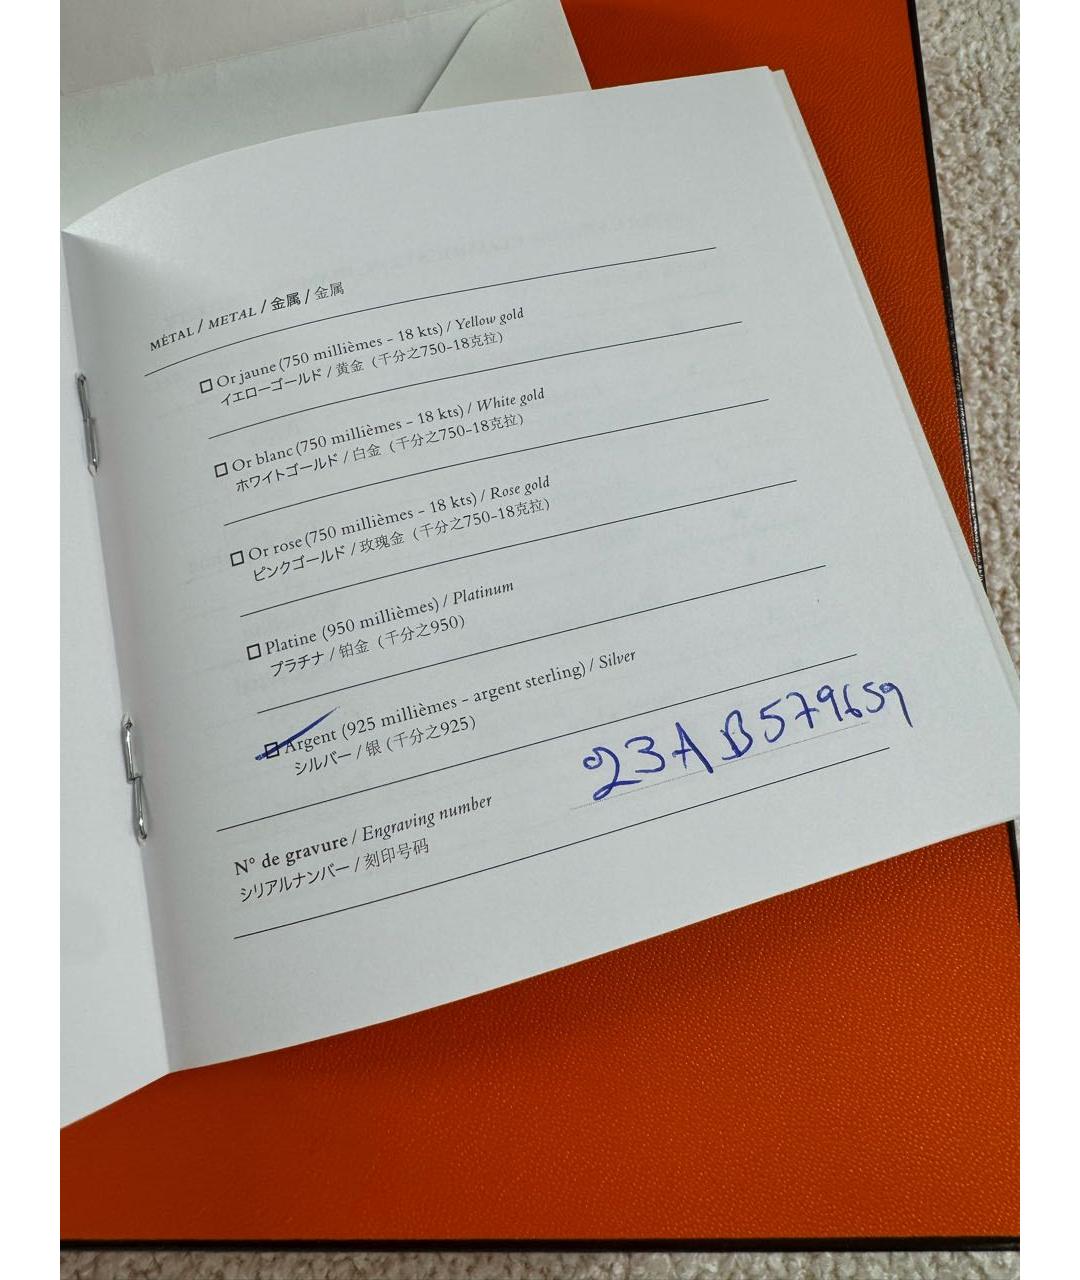 MÉTAL / METAL / 金属 / 金属
Or jaune (750 millièmes - 18 kts) / Yellow gold
イエローゴールド / 黄金 (千分之750-18克拉)
Or blanc (750 millièmes - 18 kts) / White gold
ホワイトゴールド / 白金 (千分之750-18克拉)
Or rose (750 millièmes - 18 kts) / Rose gold
ピンクゴールド / 玫瑰金 (千分之750-18克拉)
Platine (950 millièmes) / Platinum
プラチナ / 铂金 (千分之950)
Argent (925 millièmes - argent sterling) / Silver
シルバー / 银 (千分之925)
N° de gravure / Engraving number 23AB579659
シリアルナンバー / 刻印号码